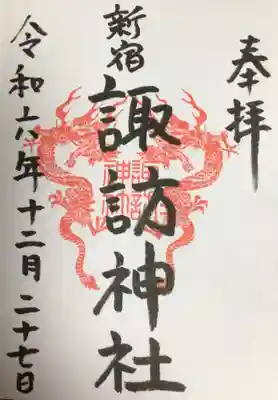 奉拝
新宿
諏訪神社
令和六年十二月二十七日